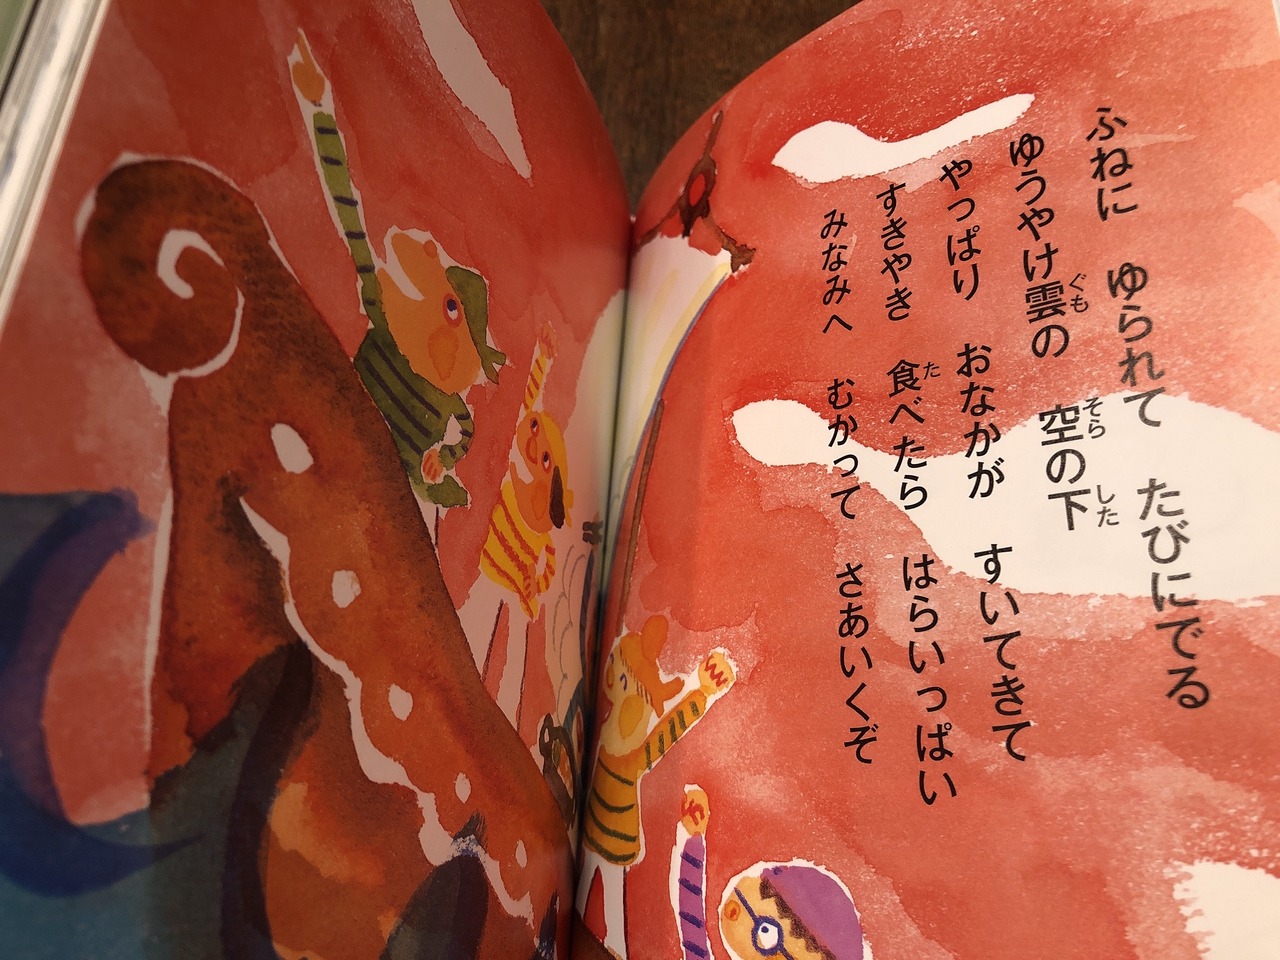 ふねに　ゆられて　たびにでる
ゆうやけ雲の　空の下
やっぱり　おなかが　すいてきて
すきやき　食べたら　はらいっぱい
みなみへ　むかって　さあいくぞ